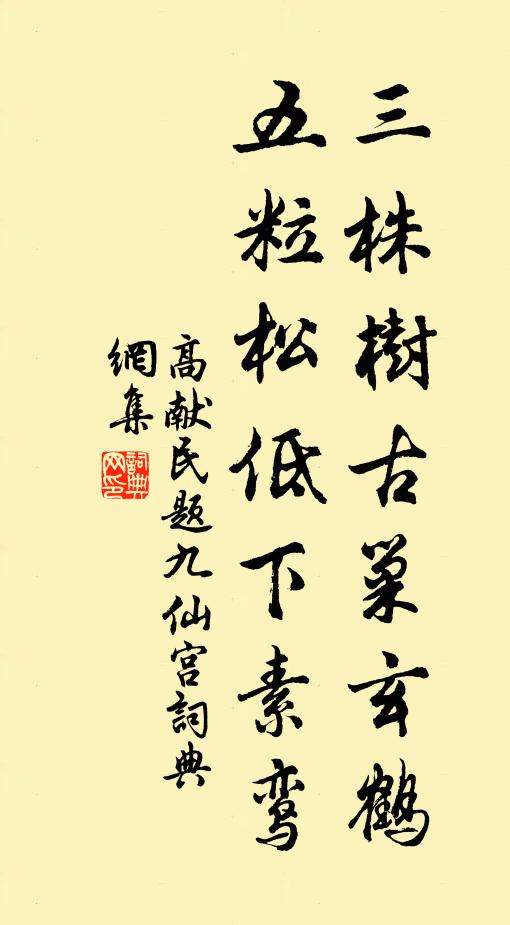 三株樹古巢玄鶴
五粒松低下素鸾
高献民题九仙宫詞典
網集
詞典
网印